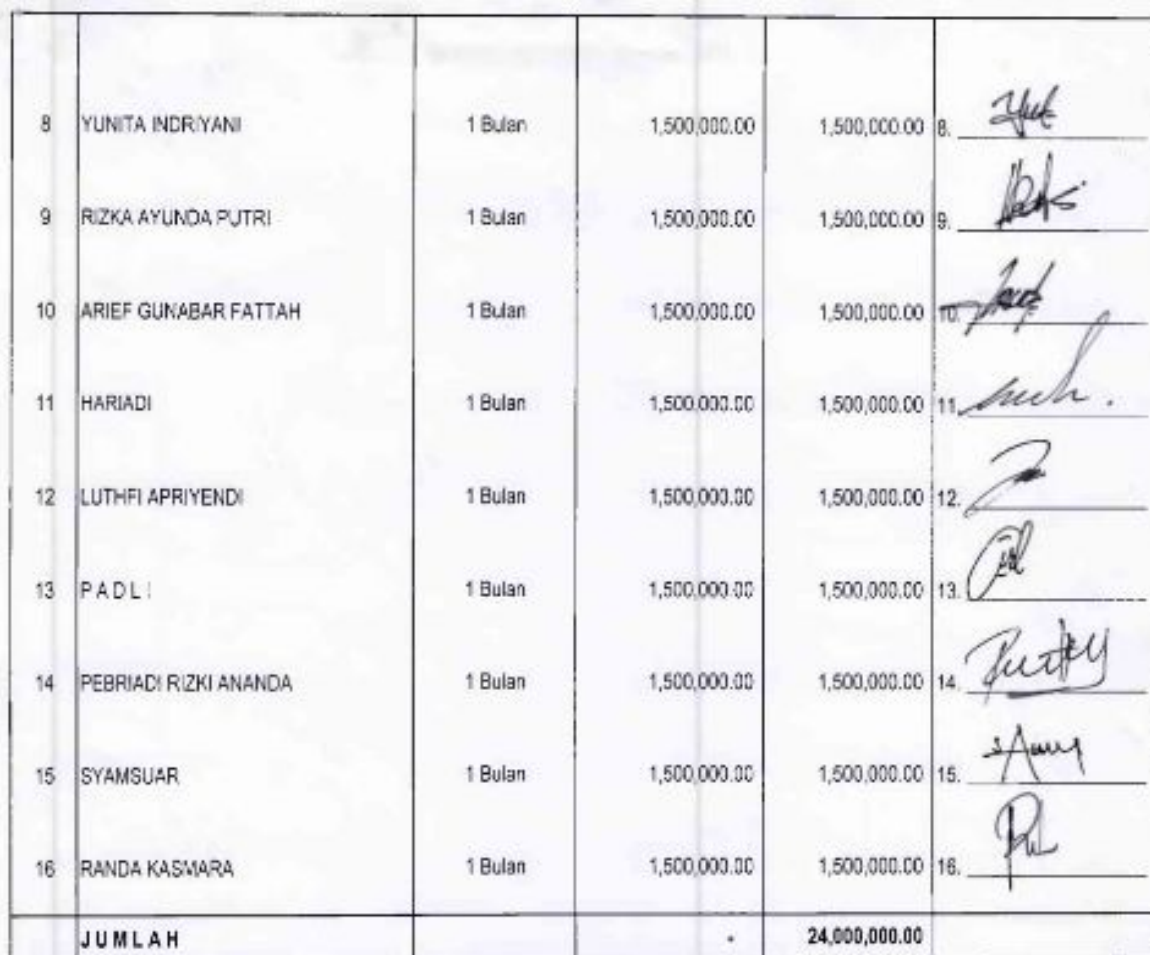 8 YUNITA INDRIYANI 1 Bulan 1,500,000.00 1,500,000.00 8.
9 RIZKA AYUNDA PUTRI 1 Bulan 1,500,000.00 1,500,000.00 9.
10 ARIEF GUNABAR FATTAH 1 Bulan 1,500,000.00 1,500,000.00 10.
11 HARIADI 1 Bulan 1,500,000.00 1,500,000.00 11.
12 LUTHFI APRIYENDI 1 Bulan 1,500,000.00 1,500,000.00 12.
13 P A D L I 1 Bulan 1,500,000.00 1,500,000.00 13.
14 PEBRIADI RIZKI ANANDA 1 Bulan 1,500,000.00 1,500,000.00 14.
15 SYAMSUAR 1 Bulan 1,500,000.00 1,500,000.00 15.
16 RANDA KASMARA 1 Bulan 1,500,000.00 1,500,000.00 16.
JUMLAH 24,000,000.00